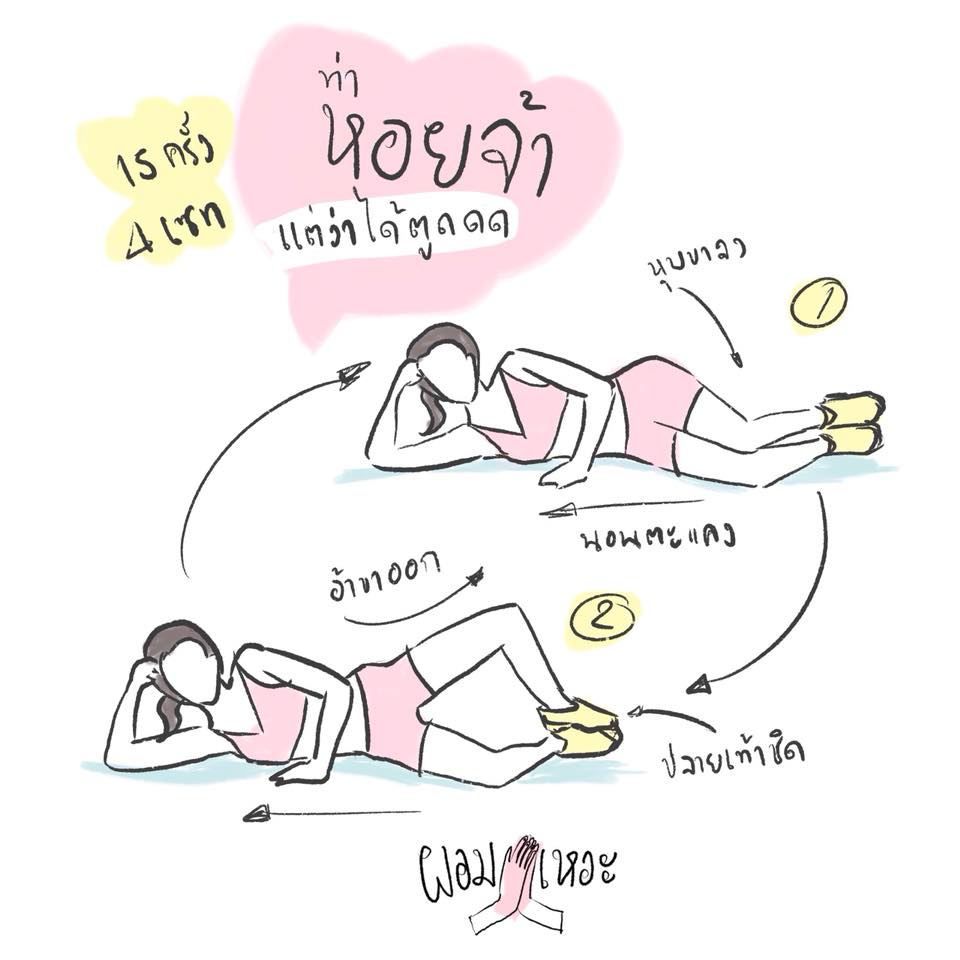 ท่า
หอยจ้า
แต่ว่าได้ตูดดด
15 ครั้ง
4 เซท
หุบขาลง
1
นอนตะแคง
อ้าขาออก
2
ปลายเท้าชิด
ผอม เหอะ